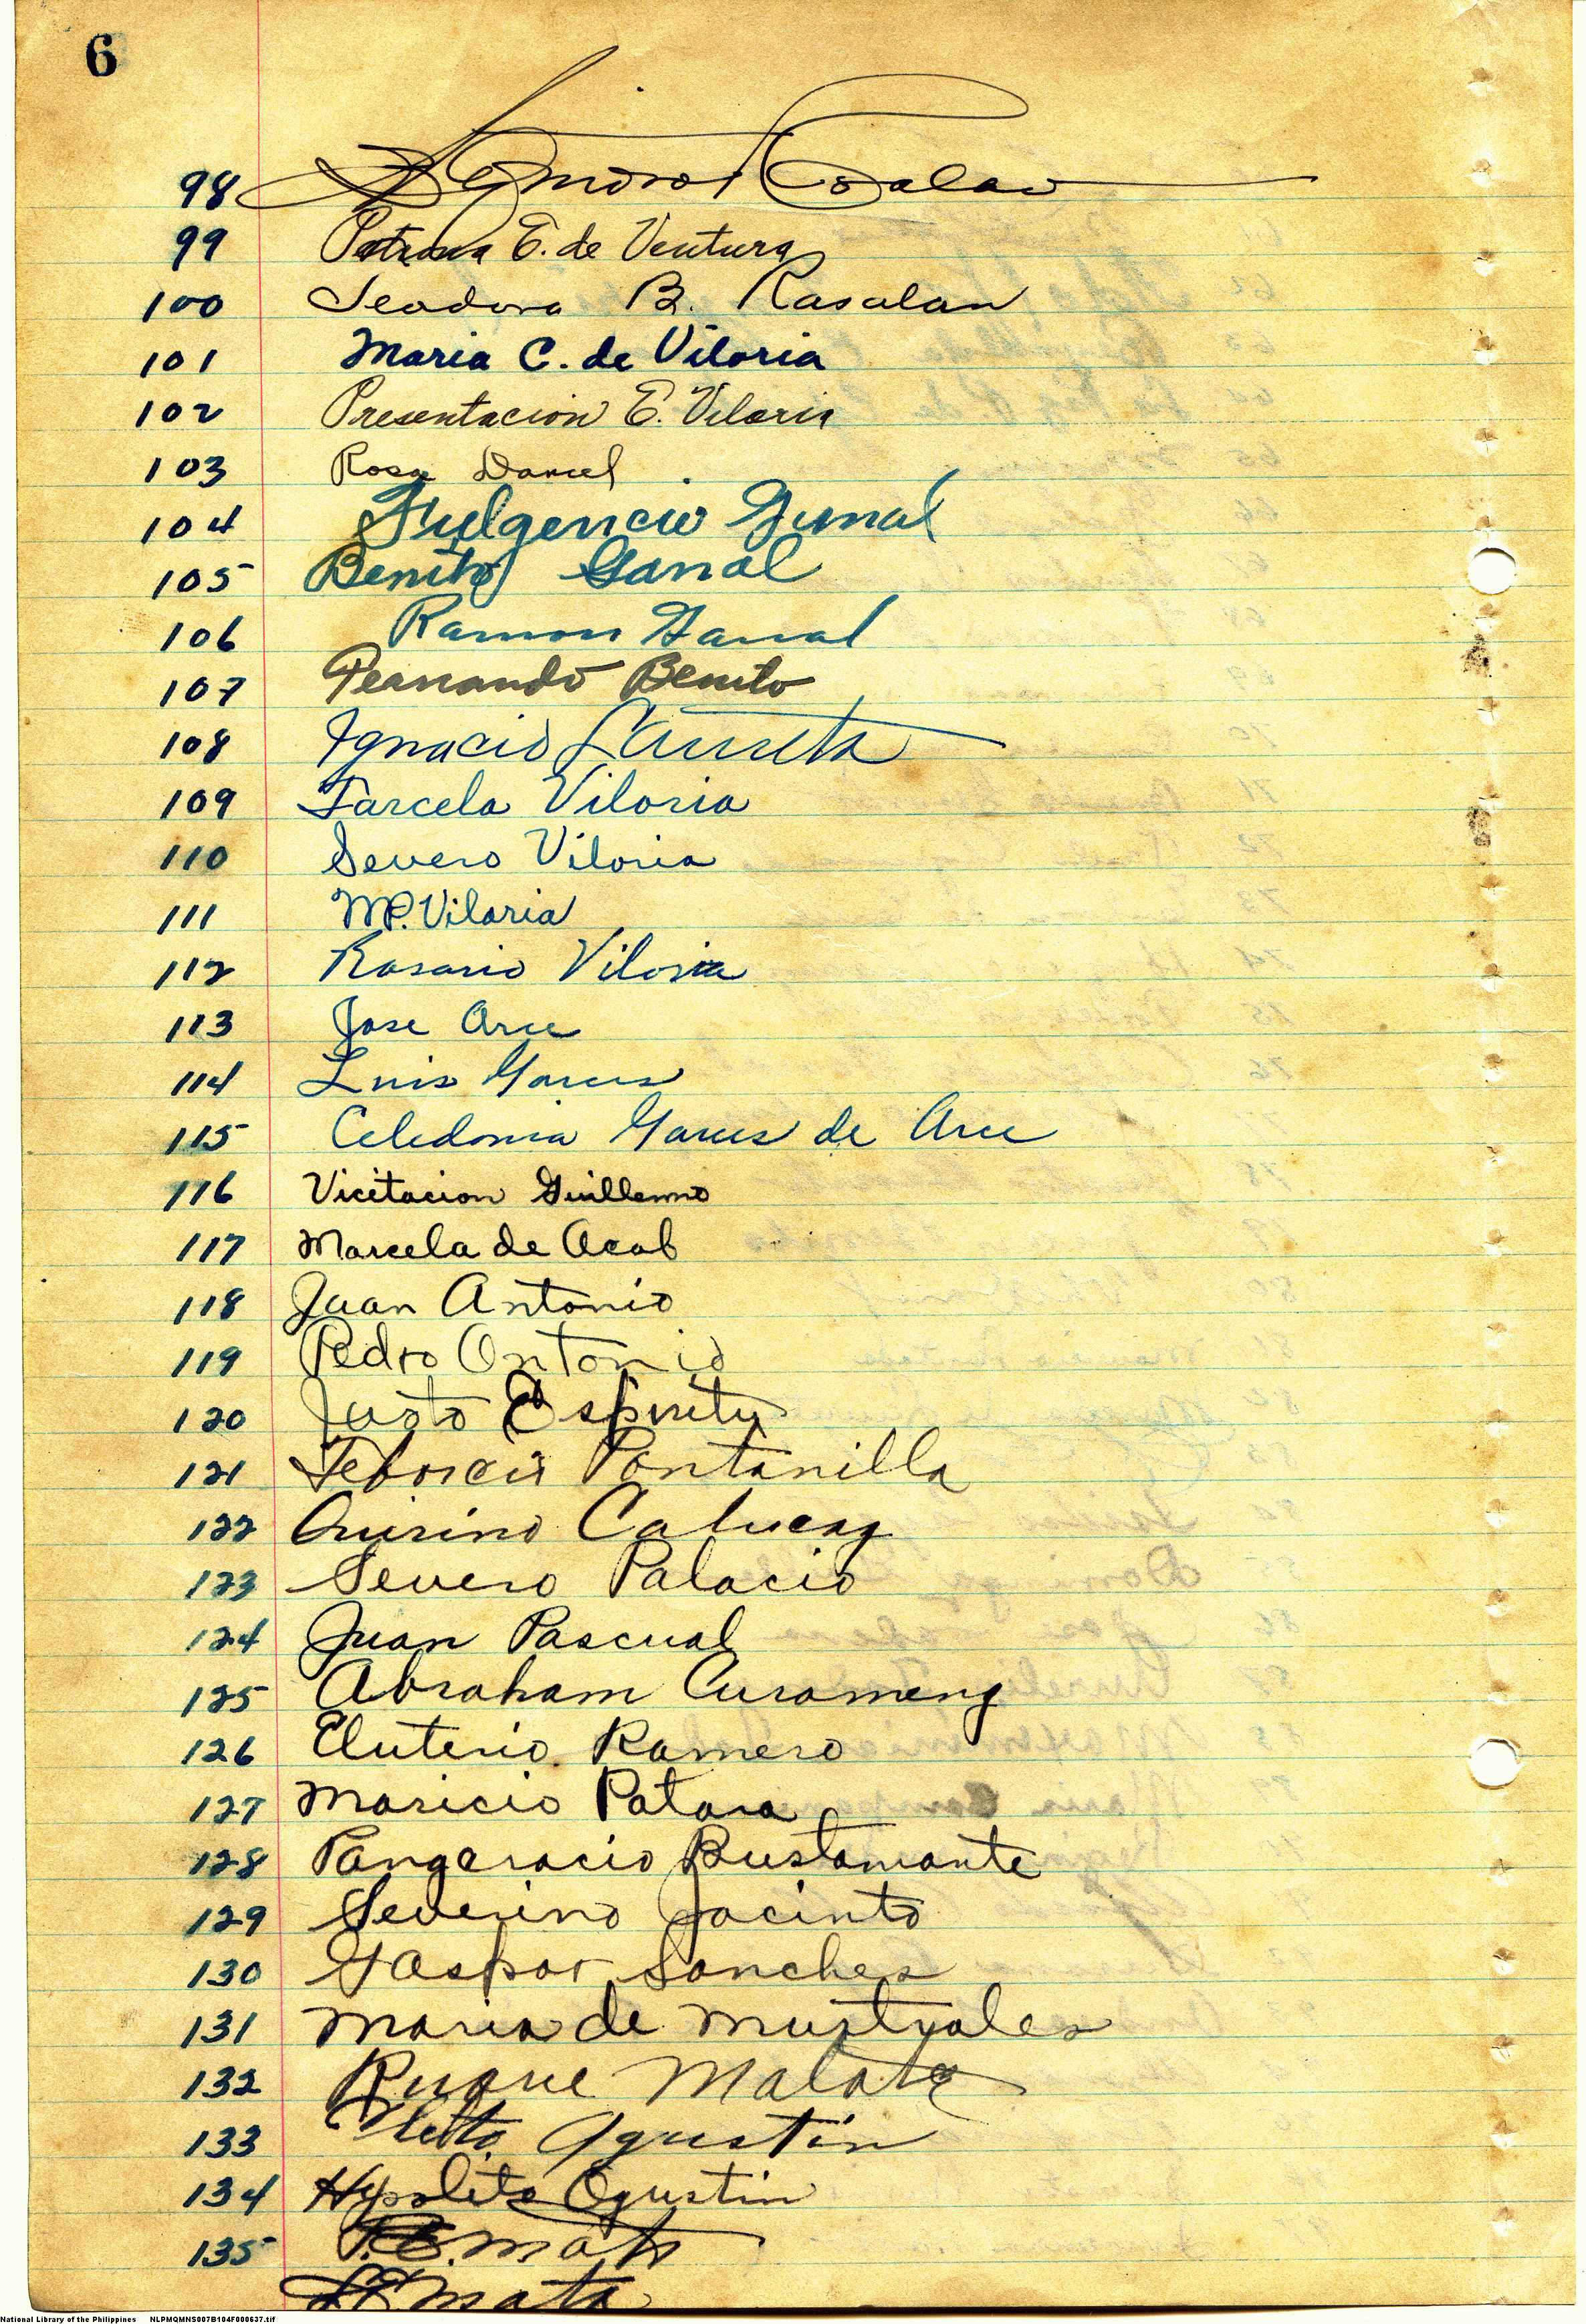 6
98
99 E. de Ventura
100 Teodora B. Rasalan
101 Maria C. de Viloria
102 Presentacion E. Viloria
103 Rosa Daniel
104 Fulgencio
105 Benito Ganal
106 Ramon Ganal
107 Fernando Benito
108 Ignacio
109 Tarcela Viloria
110 Severo Viloria
111 M.P. Viloria
112 Rosario Viloria
113 Jose Arce
114 Luis Garces
115 Celedonia Garces de Arce
116 Vicitacion Guillermo
117 Marcela de Acob
118 Juan Antonio
119 Pedro Antonio
120 Justo Espiritu
121 Pontanilla
122 Quirino
123 Severo Palacio
124 Juan Pascual
125 Abraham Curameng
126 Eluterio Ramero
127 Maricio
128 Bustamante
129 Severino Jacinto
130 Gaspar Sanchez
131 Maria de
132 Ruque
133 Agustin
134 Hypolito Agustin
135
Mata
National Library of the Philippines NLPMQMNS007B104F000637.tif